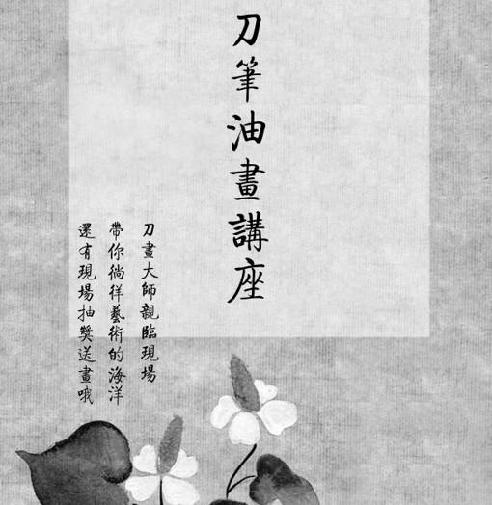 刀筆油畫講座
刀畫大師親臨現場
帶你徜徉藝術的海洋
還有現場抽獎送畫哦